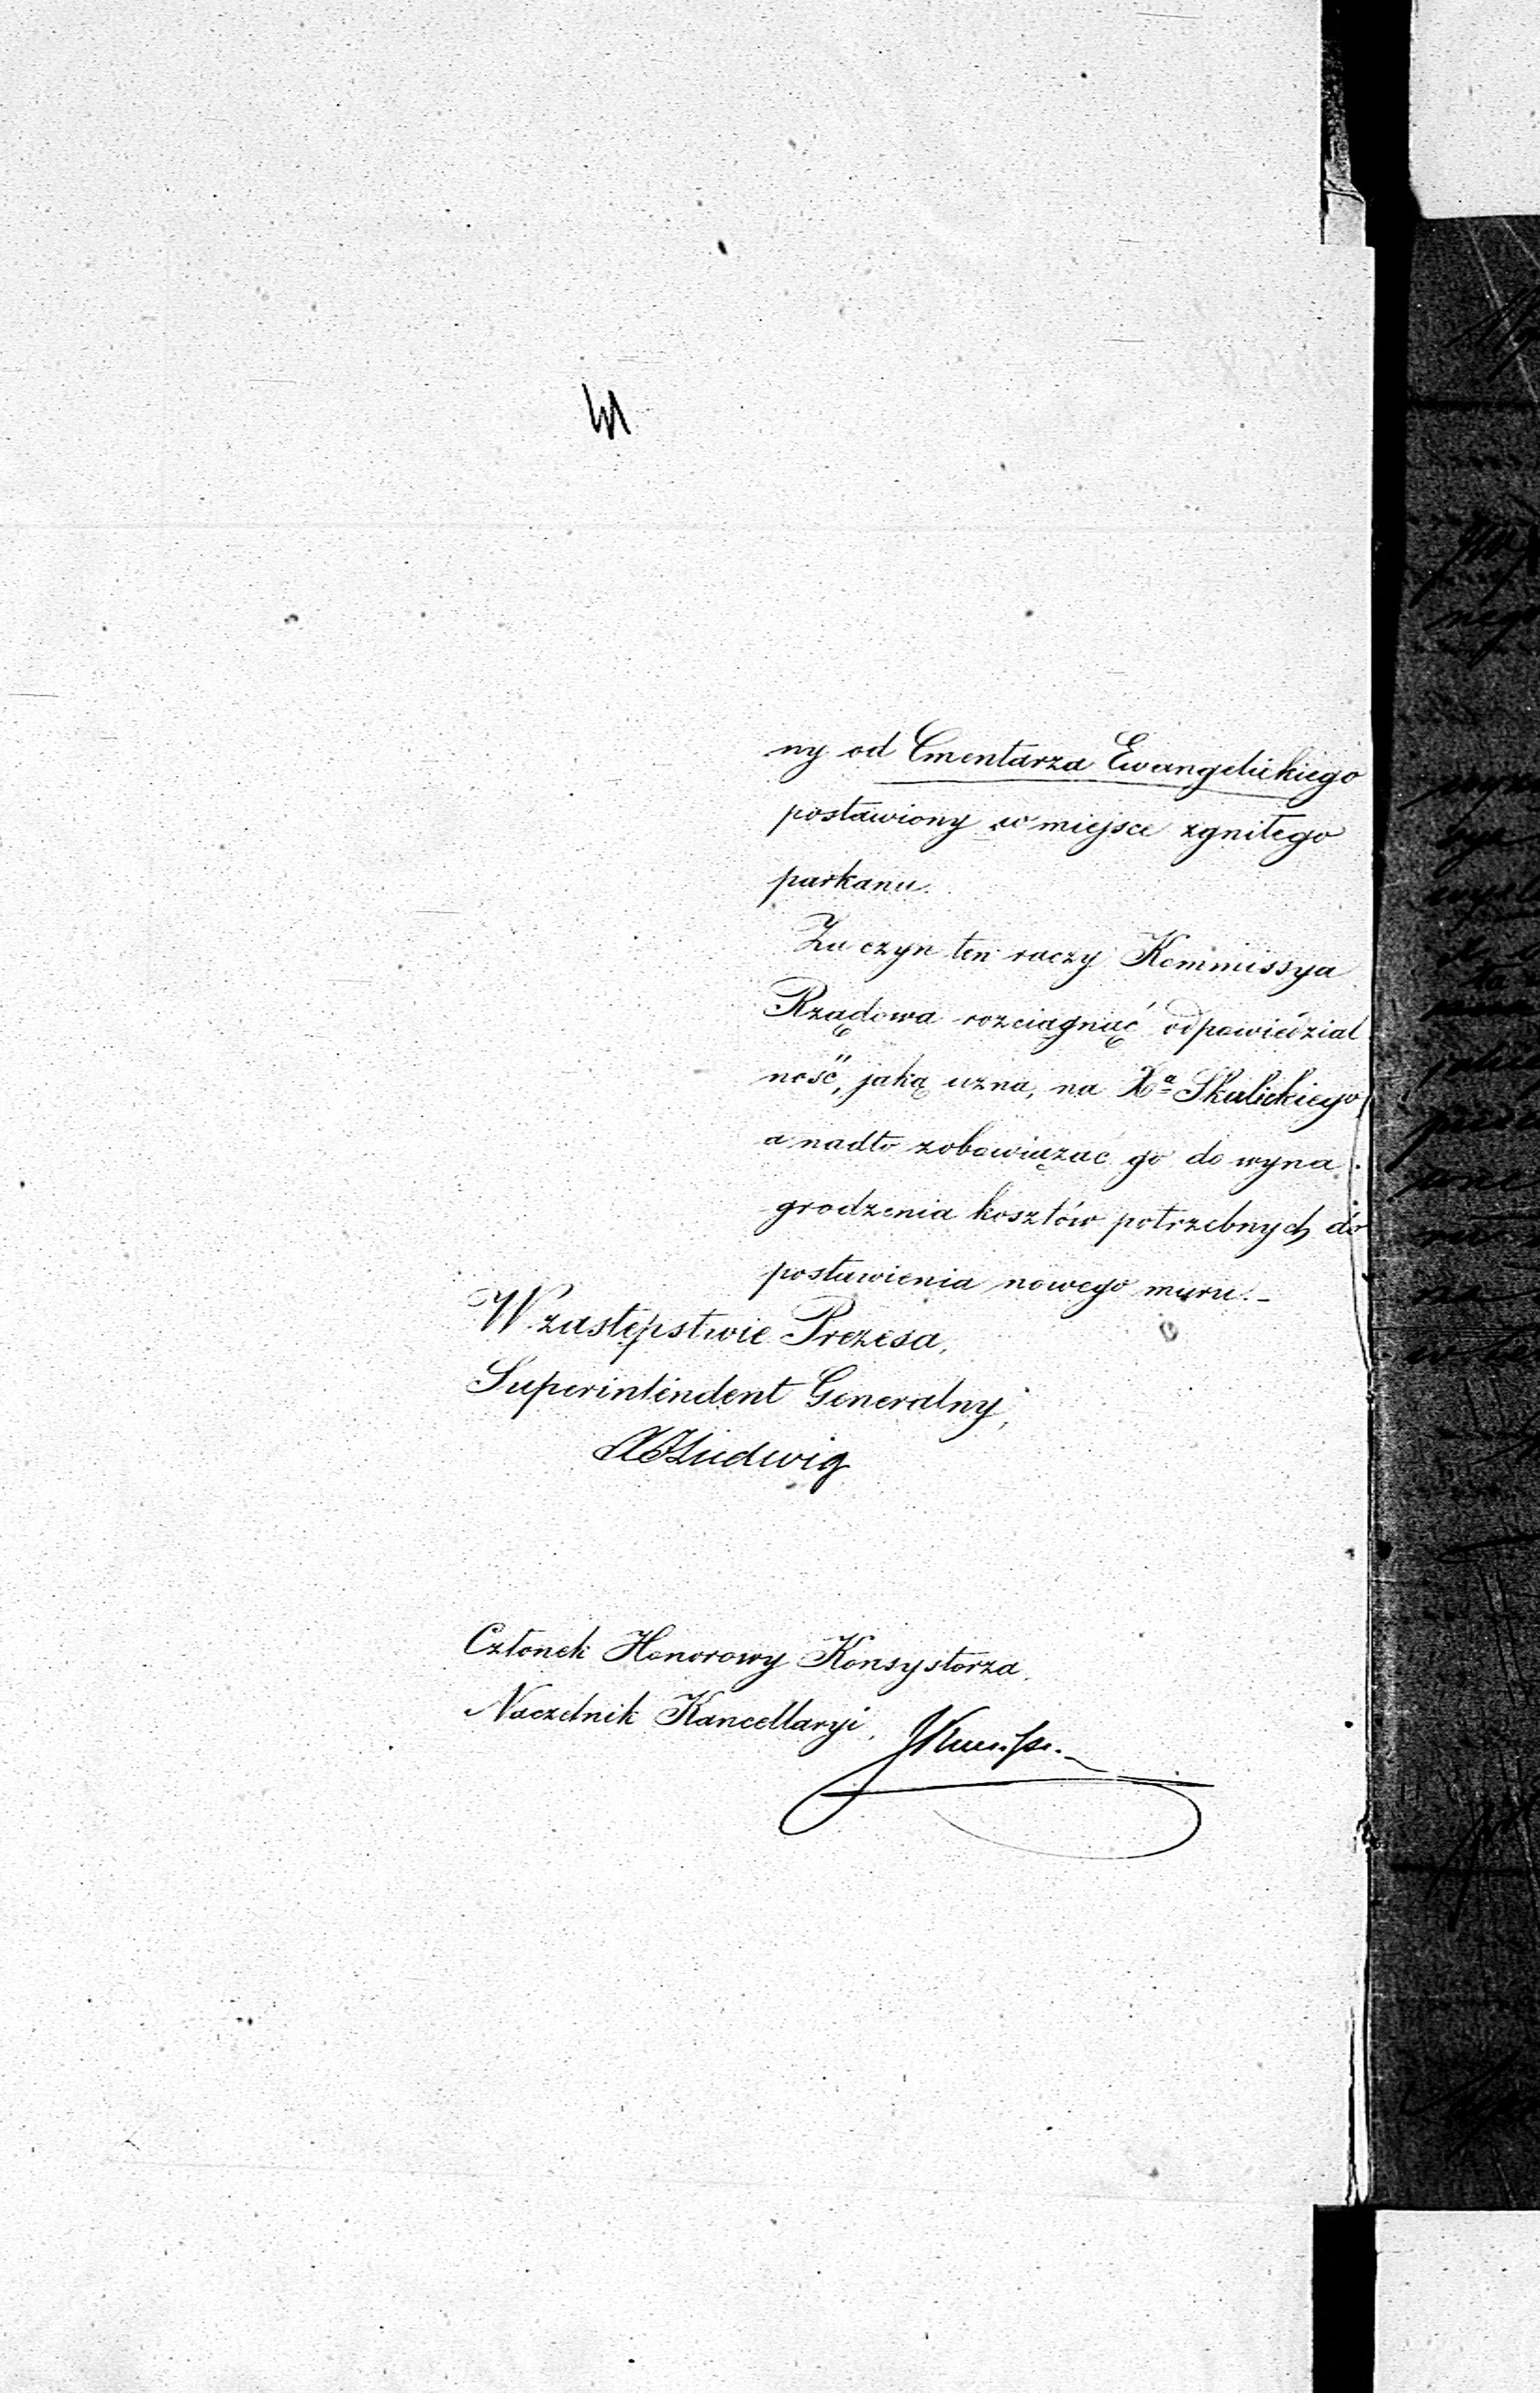 ny od Cmentarza Ewangelickiego
postawiony w miejsce zgniłego
parkanu.
Za czyn ten raczy Kommissya
Rządowa rozciągnąć odpowiedzial
ność, jaką uzna, na Xa Skulickiego
a nadto zobowiązać go do wyna
grodzenia kosztów potrzebnych do
postawienia nowego muru.
W zastępstwie Prezesa,
Superintendent Generalny,
Ludwig
Członek Honorowy Konsystorza,
Naczelnik Kancellaryi,